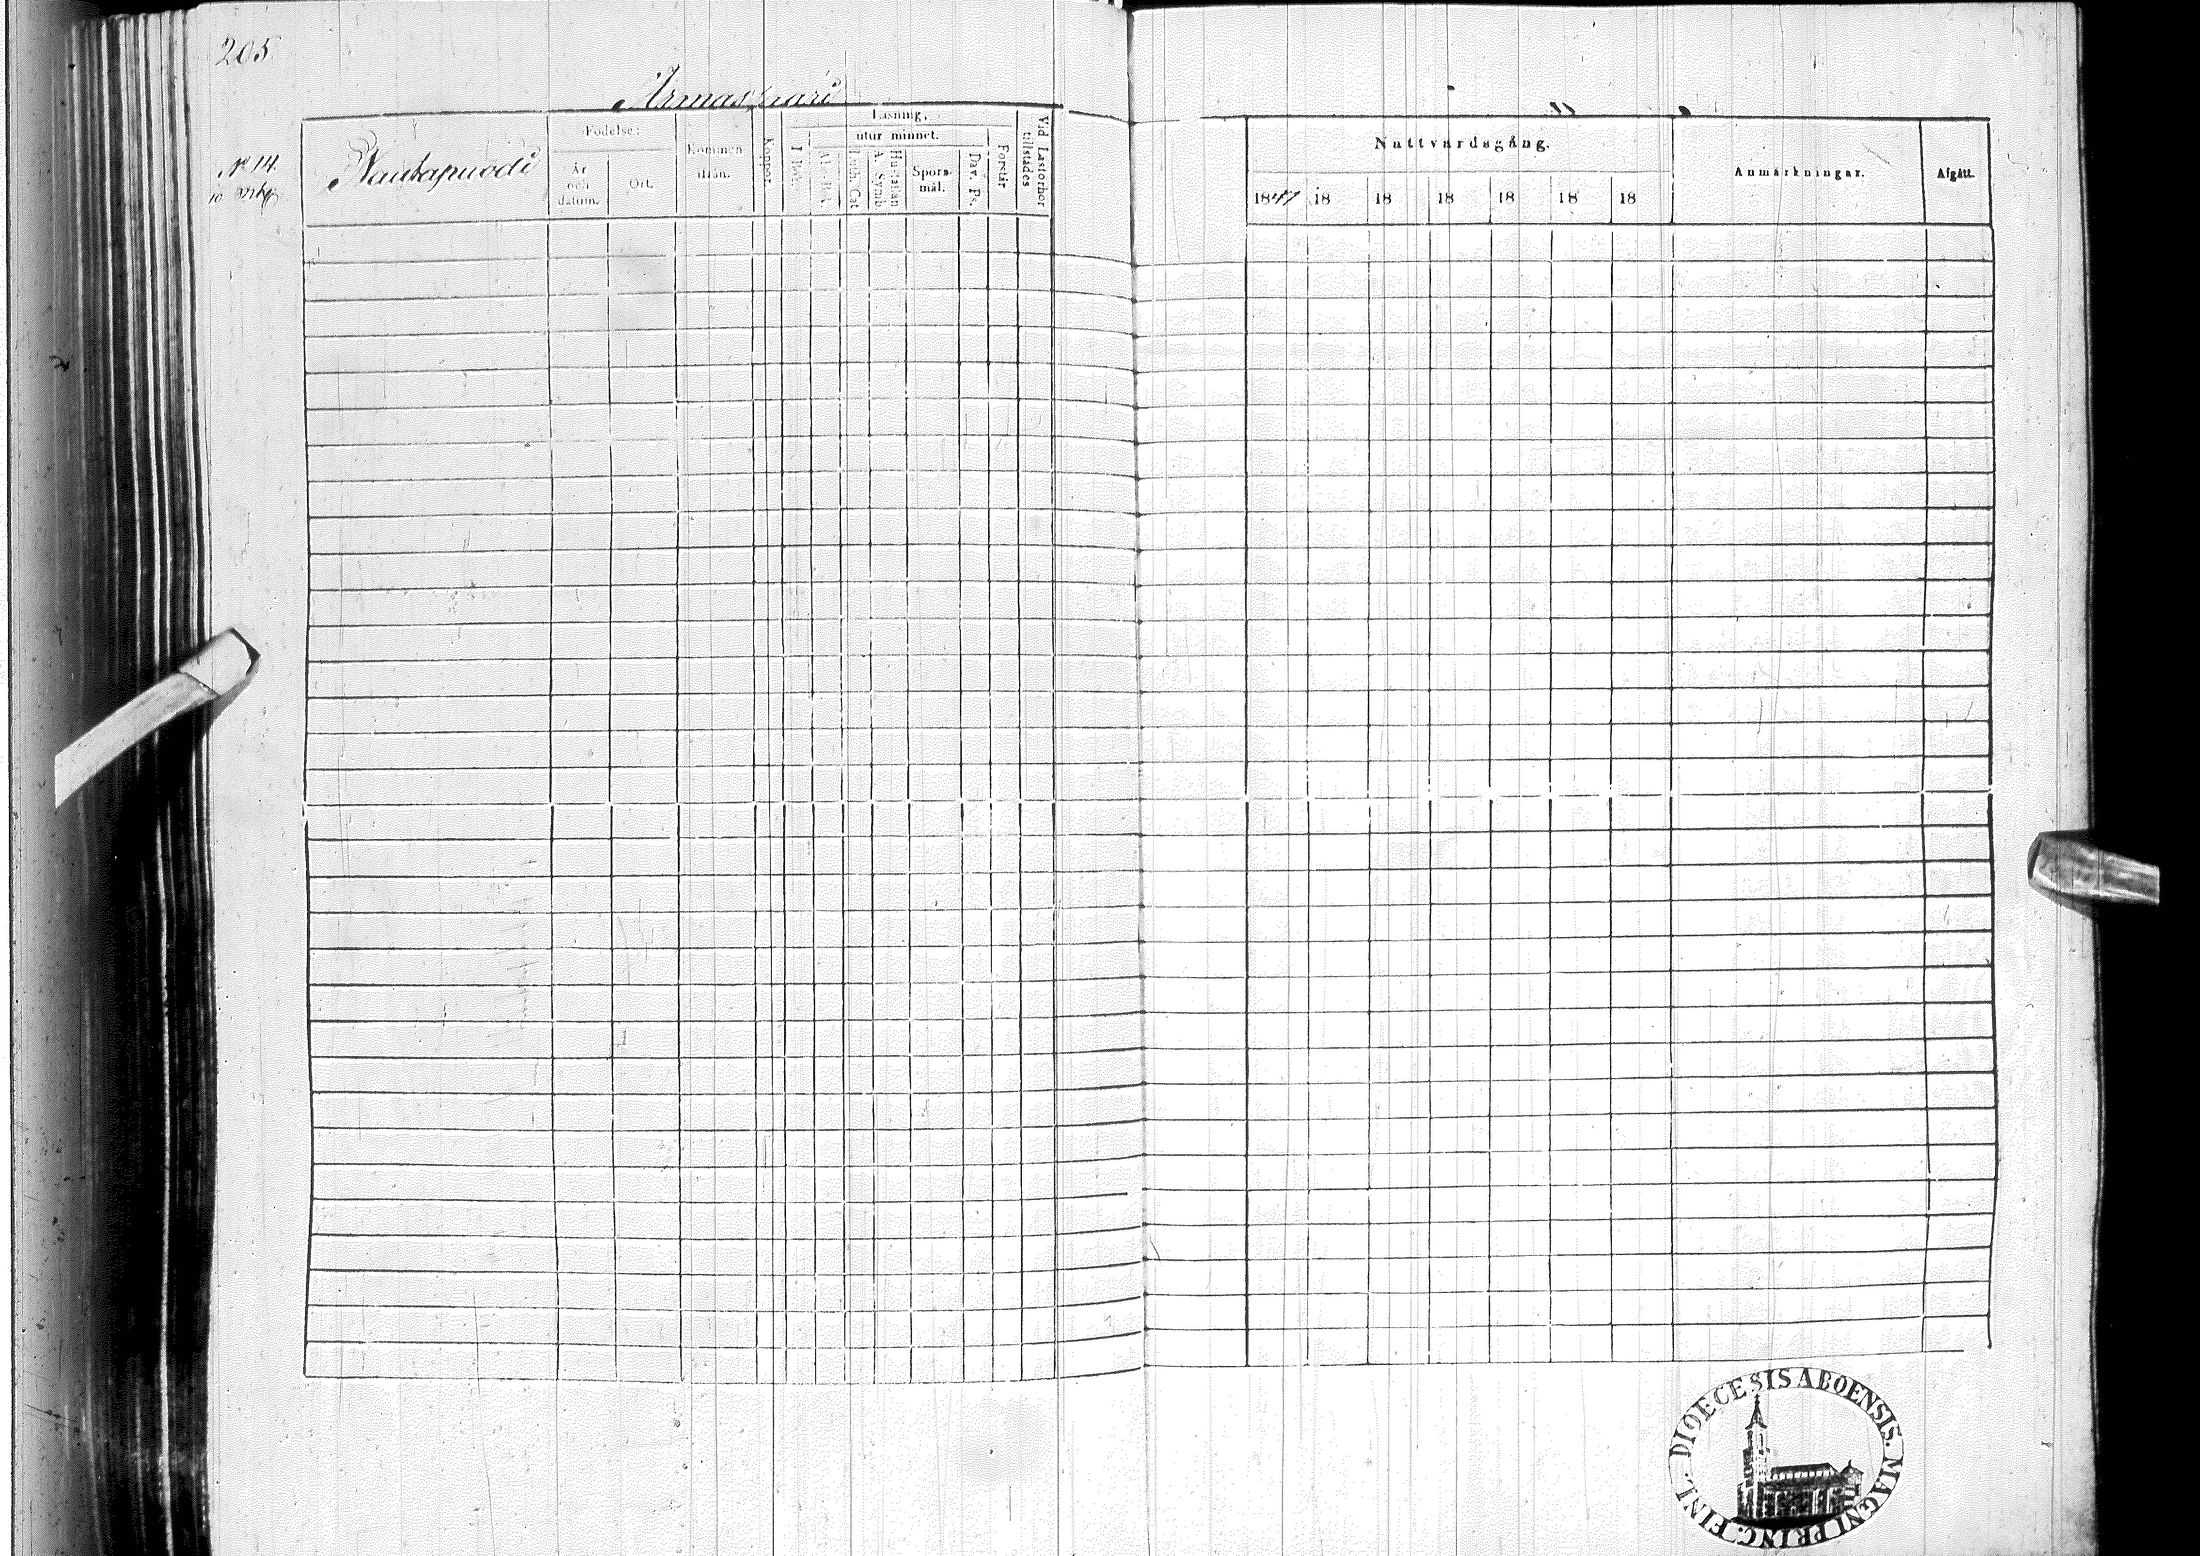 205
Nº 14.
Födelse:
År och datum.
Ort.
Kommen ifrån.
Koppor.
Läsning,
utur minnet.
I Bok.
Ab. Bok.
Luth. Cat
A. Symb.
Hustaflan
Spörs-mål.
Dav. Ps.
Förstår
Vid Läsförhör tillstädes
Nattvardsgång.
1847 18 18 18 18 18 18
Anmärkningar.
Afgått.
DIOECESIS ABOENSIS. MAGNI PRINC. FINL.